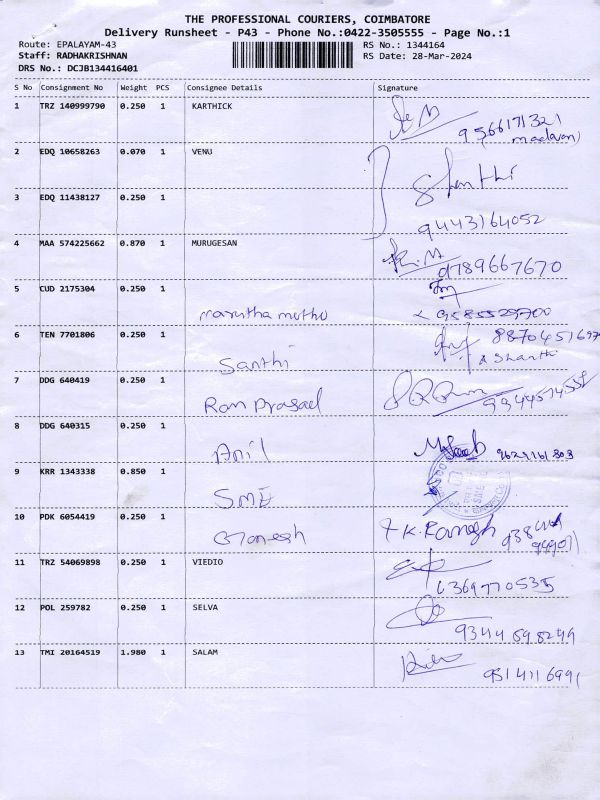 THE PROFESSIONAL COURIERS, COIMBATORE
Delivery Runsheet - P43 - Phone No.:0422-3505555 - Page No.:1
Route: EPALAYAM-43 RS No.: 1344164
Staff: RADHAKRISHNAN RS Date: 28-Mar-2024
DRS No.: DCJB134416401
S No Consignment No Weight PCS Consignee Details Signature
1 TRZ 140999790 0.250 1 KARTHICK
9566171321
2 EDQ 10658263 0.070 1 VENU
Shanthi
3 EDQ 11438127 0.250 1
9443164052
4 MAA 574225662 0.870 1 MURUGESAN
9789667670
5 CUD 2175304 0.250 1
marutha muthu 9585529700
6 TEN 7701806 0.250 1
Santhi Shanthi
7 DDG 640419 0.250 1
Ram Prasad
8 DDG 640315 0.250 1
Anil
9 KRR 1343338 0.850 1
SME
10 PDK 6054419 0.250 1
Ganesh
11 TRZ 54069898 0.250 1 VIEDIO
6369770535
12 POL 259782 0.250 1 SELVA
13 TMI 20164519 1.980 1 SALAM